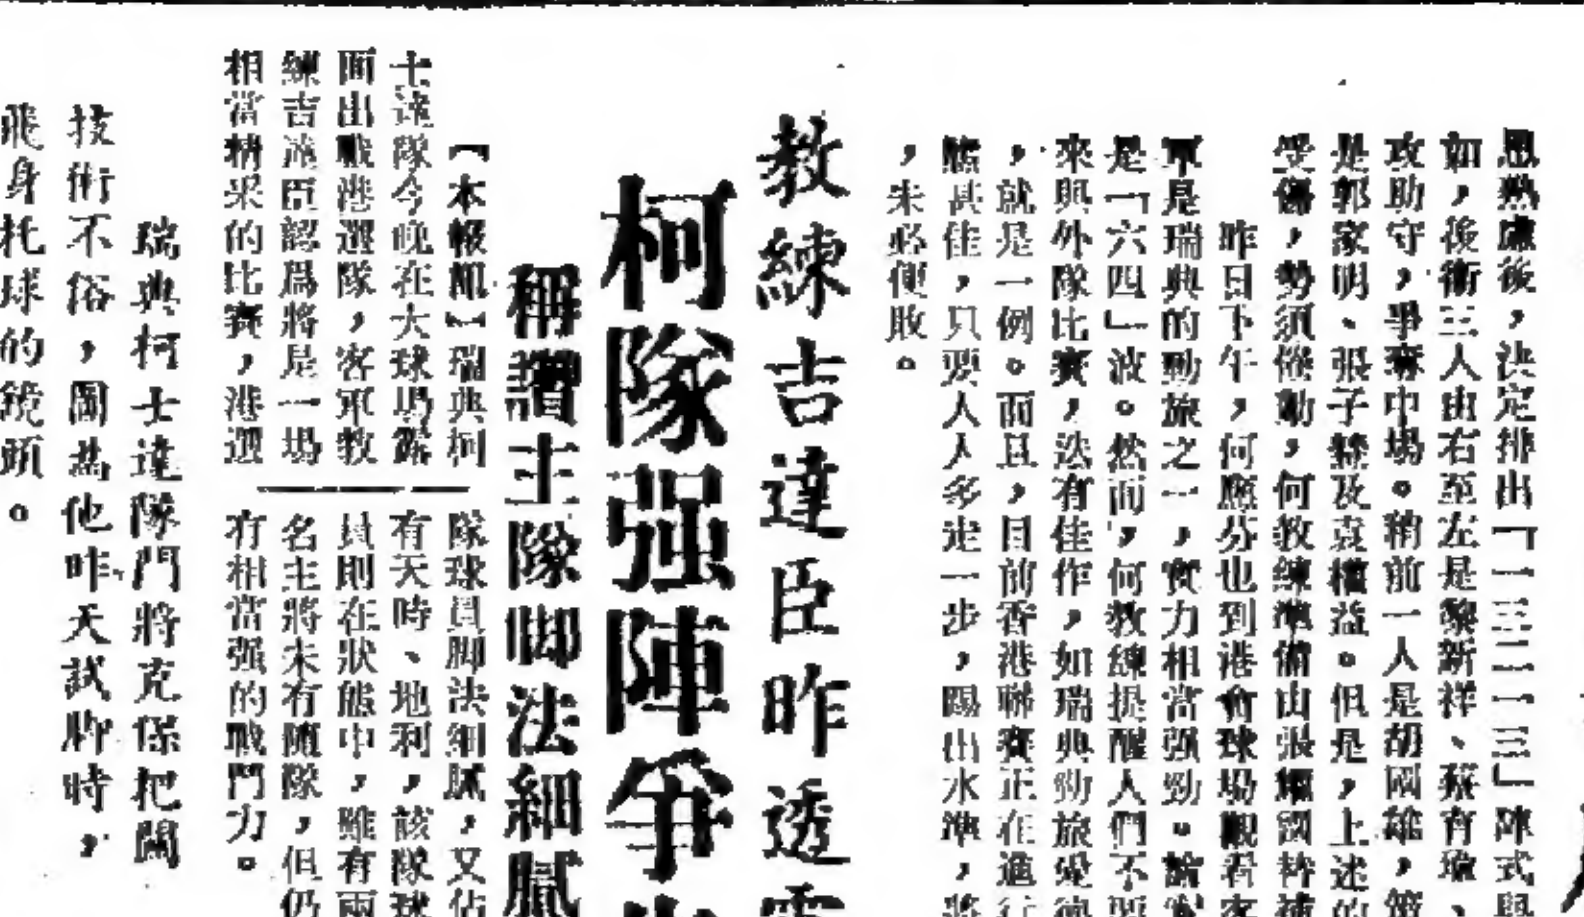 思熟慮後，決定排出「一三二一三」陣式與
如，後衞三人由右至左是黎新祥、蔡育瑜、
攻助守，爭奪中場。稍前一人是胡國雄，
是郭家明、張子慧及袁權益。但是，上述的
受傷，勢須倦勤，何教練準備由張耀國替補
昨日下午，何應芬也到港會球場觀看客
軍是瑞典的勁旅之一，實力相當强勁。
是「六四」波。然而，何教練提醒人們不要
來與外隊比賽，法有佳作，如瑞典勁旅愛
，就是一例。而且，目前香港聯賽正在進行
態甚佳，只要人人多走一步，踢出水準，將
，未必便敗。
教練吉達臣昨透露
柯隊强陣爭
稱讚主隊脚法細膩
【本報訊】瑞典柯
士達隊今晚在大球場露
面出戰港選隊，客軍教
練吉達臣認爲將是一場
相當精采的比賽，港選
隊球員脚法細膩，又佔
有天時、地利，該隊球
員則在狀態中，雖有兩
名主將未有隨隊，但仍
有相當强的戰鬥力。
瑞典柯士達隊門將克保把關
技術不俗，圖為他昨天試脚時，
飛身托球的鏡頭。